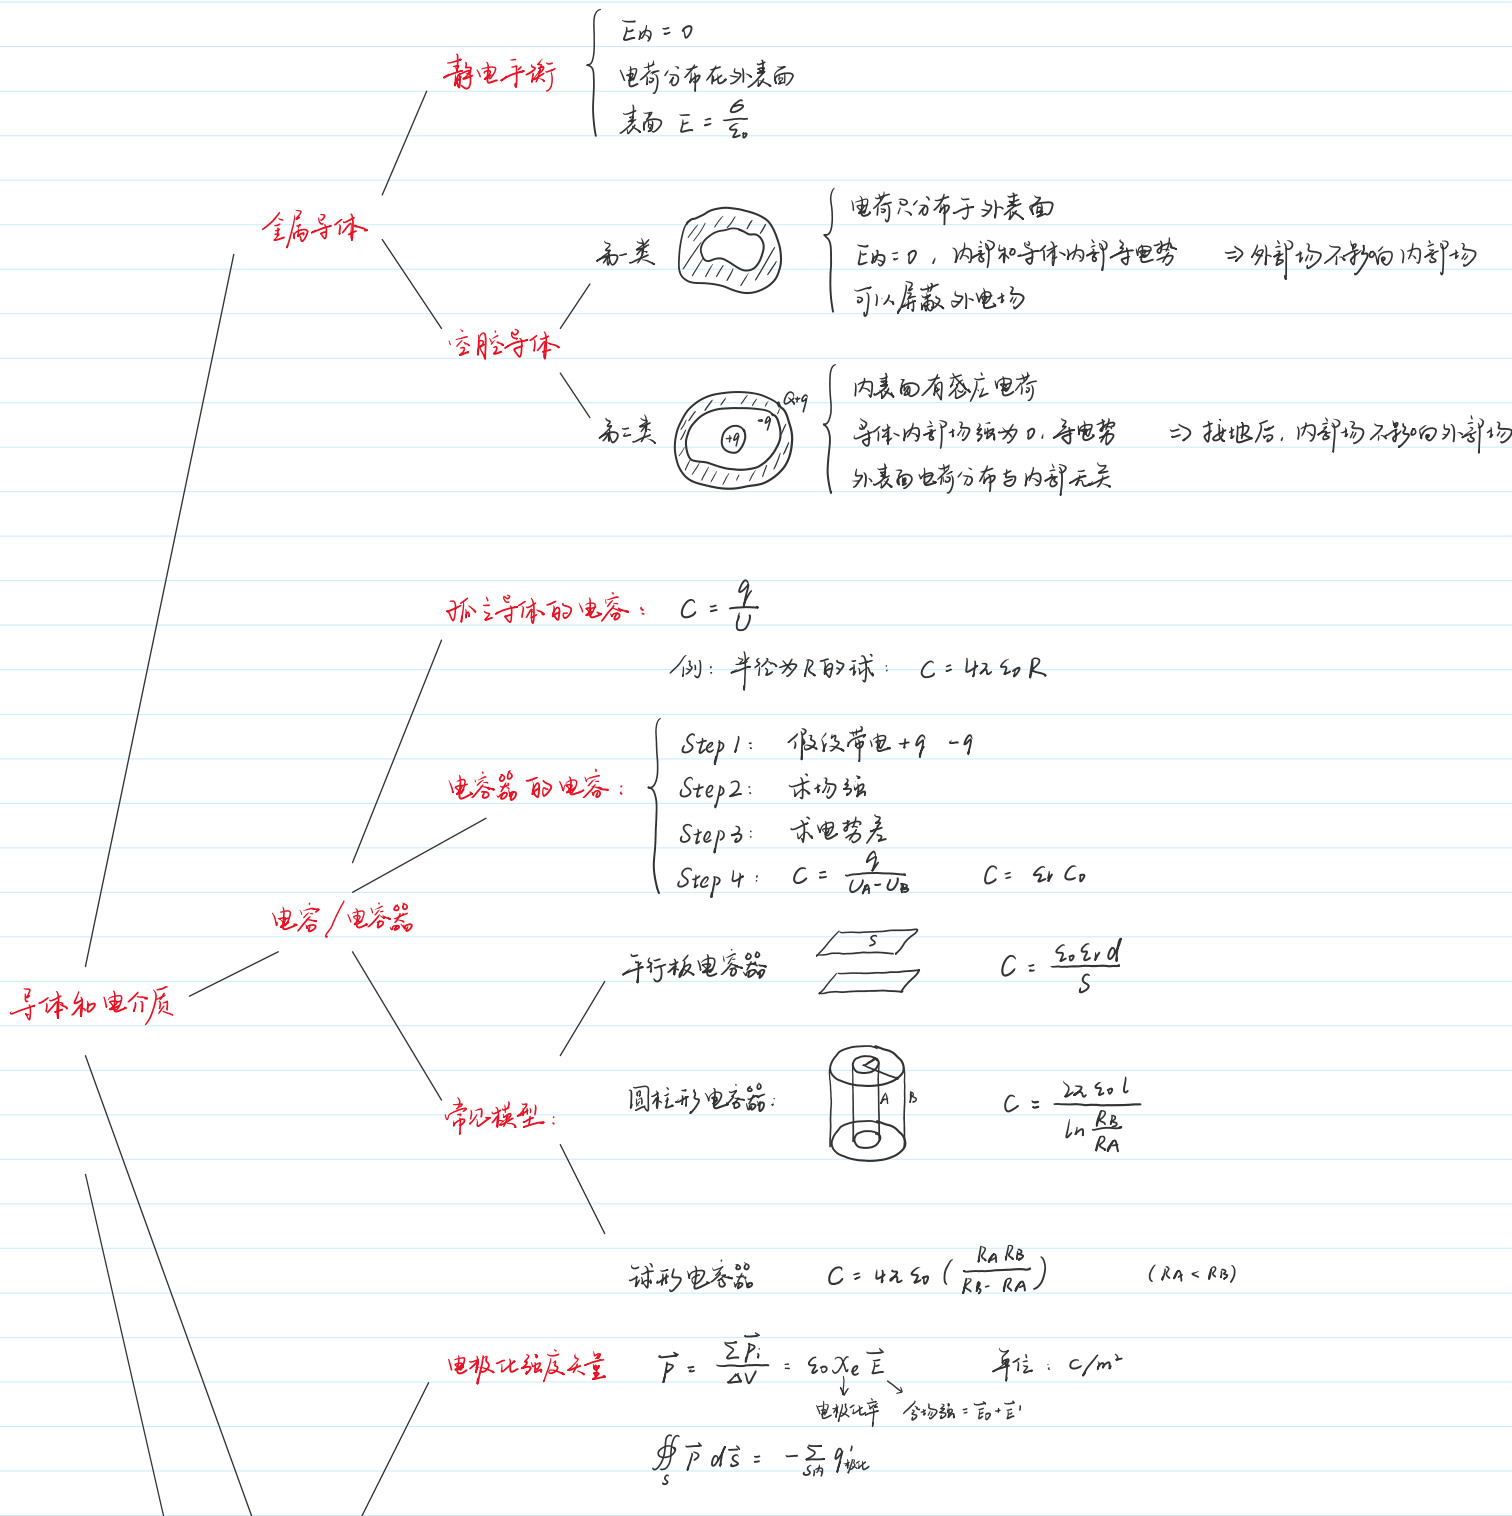 静电平衡
E内 = 0
电荷分布在外表面
表面 E = σ/ε₀
金属导体
第一类
电荷只分布于外表面
E内 = 0，内部和导体内部等电势 ⇒ 外部场不影响内部场
可以屏蔽外电场
空腔导体
第二类
+q
-q
Q+q
内表面有感应电荷
导体内部场强为0，等电势 ⇒ 接地后，内部场不影响外部场
外表面电荷分布与内部无关
孤立导体的电容： C = q/U
例：半径为R的球： C = 4πε₀R
电容器的电容：
Step 1： 假设带电 +q -q
Step 2： 求场强
Step 3： 求电势差
Step 4： C = q/(U_A - U_B) C = εr C₀
电容/电容器
平行板电容器 S C = ε₀εr d/S
导体和电介质
圆柱形电容器： A B C = 2πε₀l/(ln R_B/R_A)
常见模型：
球形电容器 C = 4πε₀(R_A R_B/(R_B - R_A)) (R_A < R_B)
电极化强度矢量 P⃗ = ΣP⃗i/ΔV = ε₀χe E⃗ 单位：C/m²
电极化率 合场强 = E⃗₀ + E⃗'
∯S P⃗ dS⃗ = -Σ S内 q'极化